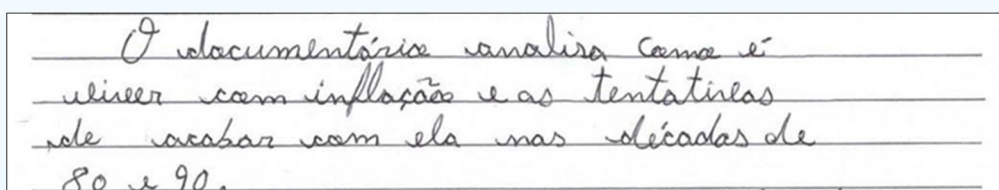 O documentário analisa como é
viver com inflação e as tentativas
de acabar com ela nas décadas de
80 e 90.